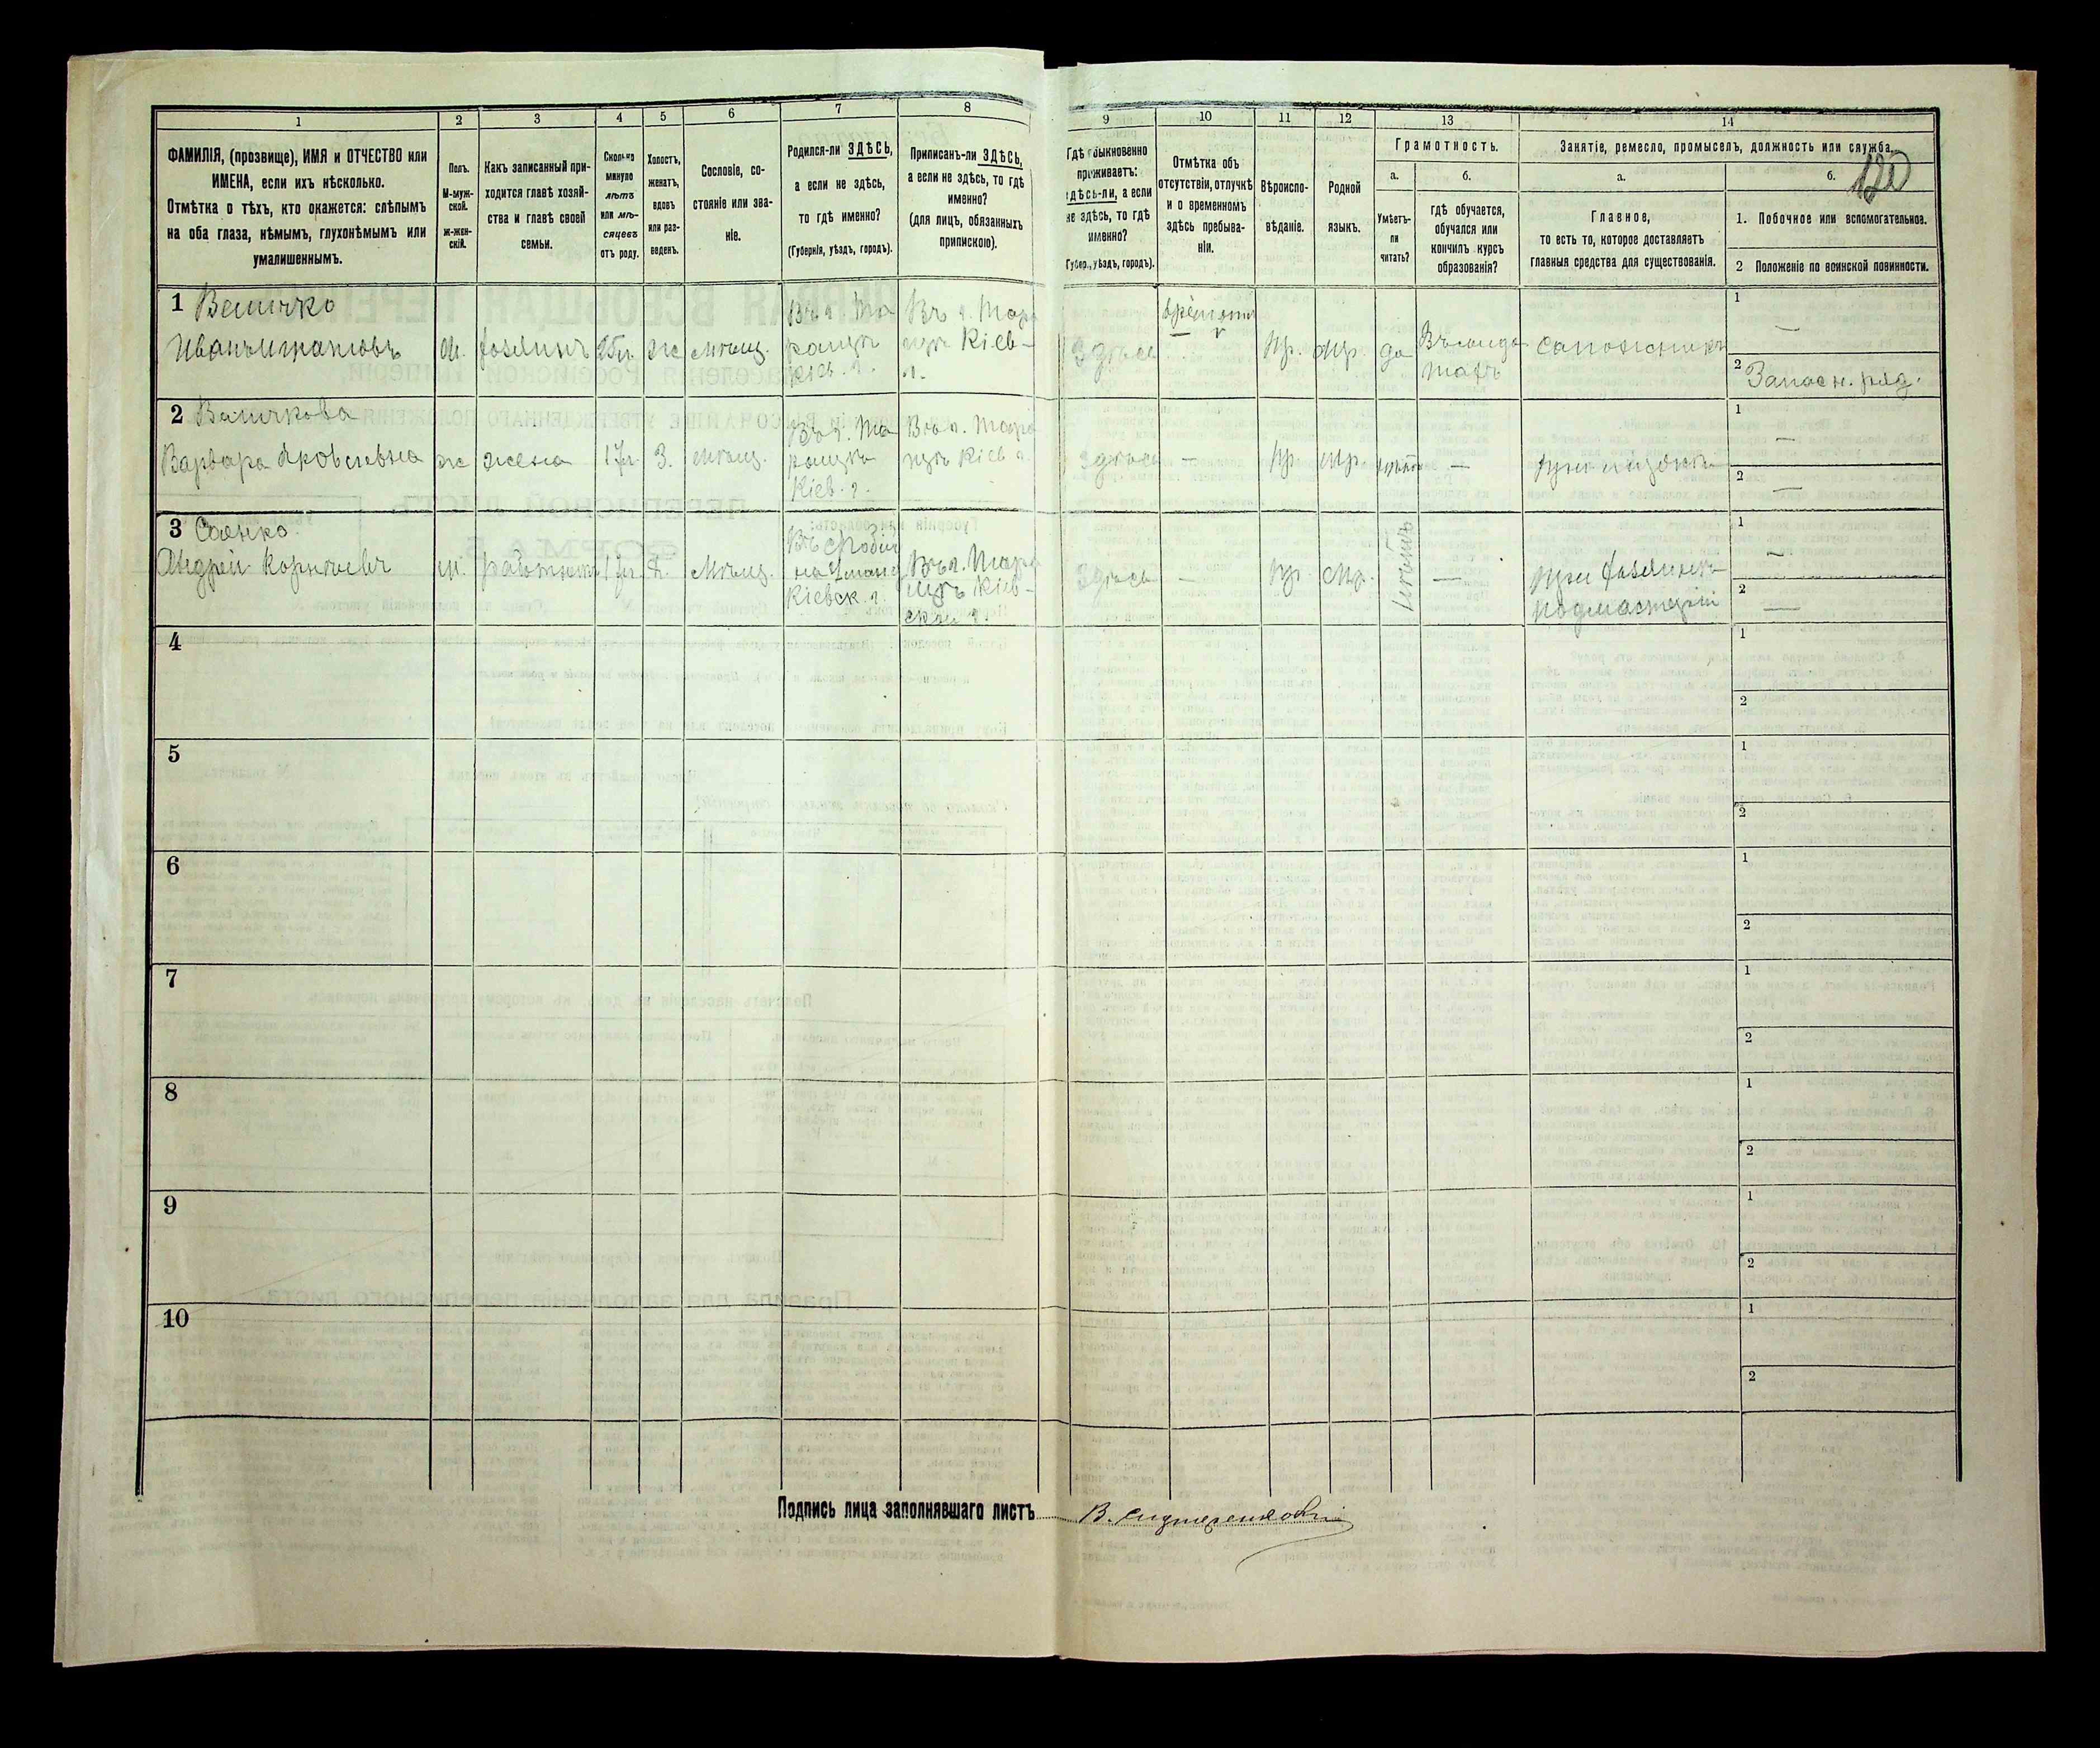 1
2
3
4
5
6
7
8
ФАМИЛІЯ, (прозвище), ИМЯ и ОТЧЕСТВО или
ИМЕНА, если ихъ нѣсколько.
Отмѣтка о тѣхъ, кто окажется: слѣпымъ
на оба глаза, нѣмымъ, глухонѣмымъ или
умалишеннымъ.
Полъ.
М-муж-
ской.
ж-жен-
скій.
Какъ записанный при-
ходится главѣ хозяй-
ства и главѣ своей
семьи.
Сколько
минуло
лѣтъ
или мѣ-
сяцевъ
отъ роду.
Холостъ,
женатъ,
вдовъ
или раз-
веденъ.
Сословіе, со-
стояніе или зва-
ніе.
Родился-ли ЗДѢСЬ,
а если не здѣсь,
то гдѣ именно?
(Губернія, уѣздъ, городъ).
Приписанъ-ли ЗДѢСЬ,
а если не здѣсь, то гдѣ
именно?
(для лицъ, обязанныхъ
припискою).
9
10
11
12
13
14
Гдѣ обыкновенно
проживаетъ:
здѣсь-ли, а если
не здѣсь, то гдѣ
именно?
(Губер., уѣздъ, городъ).
Отмѣтка объ
отсутствіи, отлучкѣ
и о временномъ
здѣсь пребыва-
ніи.
Вѣроиспо-
вѣданіе.
Родной
языкъ.
Грамотность.
а.
Умѣетъ-
ли
читать?
б.
гдѣ обучается,
обучался или
кончилъ курсъ
образованія?
Занятіе, ремесло, промыселъ, должность или служба.
120
а.
Главное,
то есть то, которое доставляетъ
главныя средства для существованія.
б.
1. Побочное или вспомогательное.
2 Положеніе по воинской повинности.
1 Величко
Иванъ
м. хозяинъ 25л. ж мѣщ.
Въ г. Та
ращѣ
Кіев. г.
Въ г. Тара
щѣ Кіев-
г.
Здѣсь
пр. мр. да
сапожникъ
1 —
2 Запасн. ряд.
2 Величкова
Варвара
ж жена 17л З. мѣщ.
Въ г. Та
ращѣ
Кіев. г.
Въ г. Тара
щѣ Кіев г
здѣсь — пр. мр. —
при мужѣ
1 —
2 —
3 Саенко
Андрей Корнѣевъ
м. работникъ 17л Х. мѣщ.
Кіевск. г.
Въ г. Тара
щѣ Кіев-
ской г.
Здѣсь — пр. мр. нѣтъ —
при хозяинѣ
подмастерій
1 —
2 —
4
1
2
5
1
2
6
1
2
7
1
2
8
1
2
9
1
2
10
1
2
Подпись лица заполнявшаго листъ